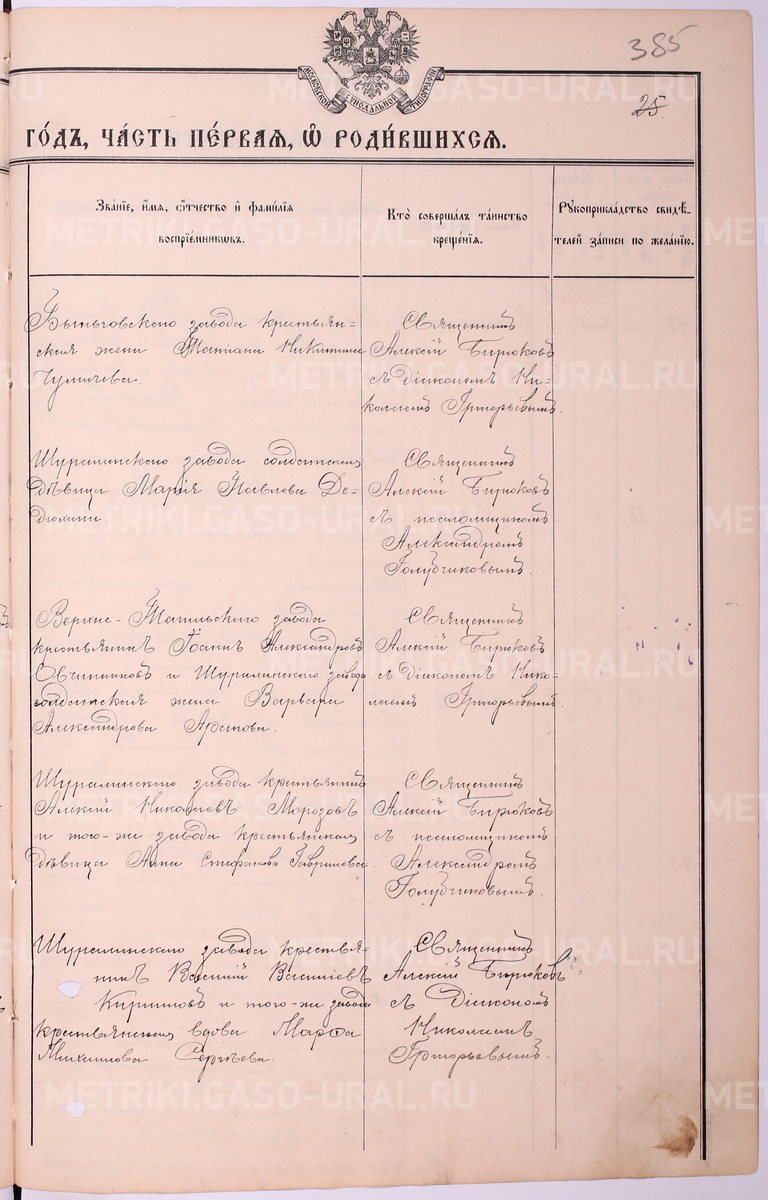 385
25
МОСКОВСКОЙ СѴНОДАЛЬНОЙ ТИПОГРАФІИ
ГО́ДЪ, ЧА́СТЬ ПЕ́РВАЯ, Ѽ РОДИ́ВШИХСЯ.
Зва́нїе, и҆́мя, ѻ҆́тчество и҆ фами́лїя
воспрїе́мникѡвъ.
Кто̀ соверша́лъ та́инство
креще́нїя.
Рꙋкоприкла́дство свидѣ́-
телей за́писи по жела́нїю.
Быньговскаго завода крестьян=
ская жена Татіана Никитина
Чумичева.
Священникъ
Алексій Бирюковъ
съ діакономъ Ни-
колаемъ Григорьевымъ.
Шуралинскаго завода солдатская
дѣвица Марія Павлова Де-
дюхина.
Священникъ
Алексій Бирюковъ
съ псаломщикомъ
Александромъ
Голубчиковымъ.
Верхне-Тагильскаго завода
крестьянинъ Іоаннъ Александровъ
Овчинниковъ и Шуралинскаго завода
солдатская жена Варвара
Александрова Арапова.
Священникъ
Алексій Бирюковъ
съ діакономъ Нико-
лаемъ Григорьевымъ.
Шуралинскаго завода крестьянинъ
Алексій Николаевъ Морозовъ
и того-же завода крестьянская
дѣвица Анна Стефанова Гаврилова.
Священникъ
Алексій Бирюковъ
съ псаломщикомъ
Александромъ
Голубчиковымъ.
Шуралинскаго завода крестья-
нинъ Василій Васильевъ
Кирилловъ и того-же завода
крестьянская вдова Марѳа
Михаилова Сергѣева.
Священникъ
Алексій Бирюковъ
съ Діакономъ
Николаемъ
Григорьевымъ.
METRIKI.GASO-URAL.RU